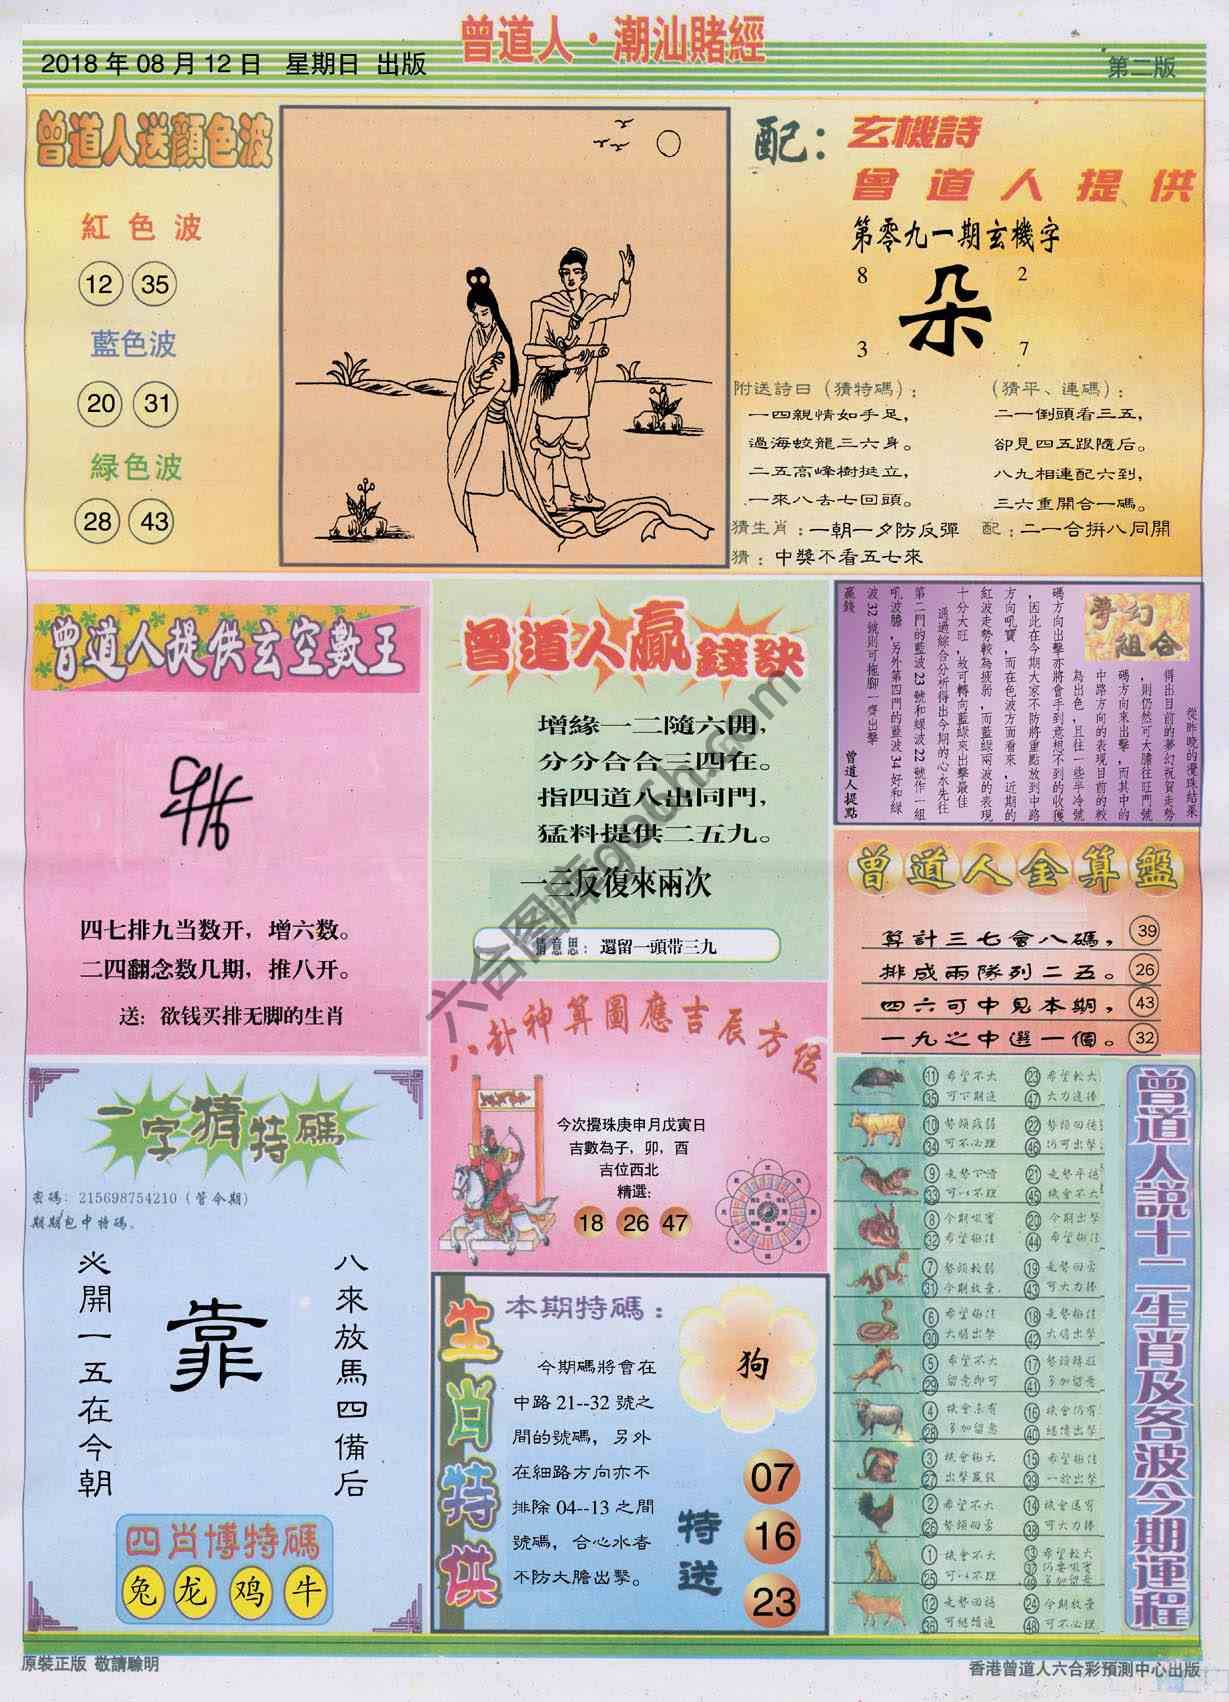 曾道人·潮汕賭經
2018年08月12日 星期日 出版
第二版
曾道人送顏色波
紅色波
12 35
藍色波
20 31
緑色波
28 43
配：
玄機詩
曾道人提供
第零九一期玄機字
8 2
朵
3 7
附送詩曰（猜特碼）：
一四親情如手足，
過海蛟龍三六身。
二五高峰樹挺立，
一來八去七回頭。
（猜平、連碼）：
二一倒頭看三五，
卻見四五跟隨后。
八九相連配六到，
三六重開合一碼。
猜生肖：一朝一夕防反彈 配：二一合拼八同開
猜：中獎不看五七來
曾道人提供玄空數王
四七排九当数开，增六数。
二四翻念数几期，推八开。
送：欲钱买排无脚的生肖
曾道人贏錢訣
增緣一二隨六開，
分分合合三四在。
指四道八出同門，
猛料提供二五九。
一三反復來兩次
猜意思：還留一頭带三九
夢幻組合
從昨晚的攪珠結果
得出目前的夢幻祝賀走勢
，則仍然可大膽往旺門號
碼方向來出擊，而其中的
中路方向的表現目前的較
為出色，且往一些半冷號
碼方向出擊亦將會手到意想不到的收獲
，因此在今期大家不防將重點放到中路
方向吼寶，而在色波方面看來，近期的
紅波走勢較為疲弱，而藍綠兩波的表現
十分大旺，故可轉向藍綠來出擊最佳
通過綜合分析得出今期的心水先往
第二門的藍波23號和緑波22號作一組
吼波膽，另外第四門的藍波34好和綠
波32號則可拖腳一齊出擊
贏錢
曾道人提點
曾道人金算盤
算計三七會八碼， 39
排成兩隊列二五。 26
四六可中見本期， 43
一九之中選一個。 32
八卦神算圖應吉辰方位
今次攪珠庚申月戊寅日
吉數為子，卯，酉
吉位西北
精選：
18 26 47
一字猜特碼
密碼：215698754210（管今期）
期期包中特碼。
八來放馬四備后
靠
必開一五在今朝
四肖博特碼
兔 龙 鸡 牛
生肖特供
本期特碼：
今期碼將會在
中路21--32號之
間的號碼，另外
在細路方向亦不
排除04--13之間
號碼，合心水者
不防大膽出擊。
狗
特送
07
16
23
曾道人說十二生肖及各波今期運程
11 希望不大 23 希望較大
35 可下期追 47 大力追捧
10 勢頭疲弱 22 勢頭回穩
34 可不必理 46 仍可出擊
9 走勢下滑 21 走勢平穩
33 可以不理 45 機會不大
8 今期吸寶 20 今期出擊
32 希望極佳 44 希望極佳
7 勢頭較弱 19 走勢回勇
31 今期放棄 43 可大力捧
6 希望極佳 18 走勢極佳
30 大膽出擊 42 大膽出擊
5 希望不大 17 勢頭轉旺
29 留意即可 41 多加留意
4 機會未有 16 機會仍有
28 多加留意 40 繼續出擊
3 機會極大 15 希望極佳
27 出擊贏錢 39 一於出擊
2 希望不大 14 機會送寶
26 勢頭回勇 38 可大力捧
1 機會不大 13 希望較大
25 可以不理 37 仍要吸寶
49 多加留意
12 走勢回穩 24 今期放棄
36 可繼續追 48 可不必理
原裝正版 敬請驗明
香港曾道人六合彩預測中心出版
六合图库gaochi.com